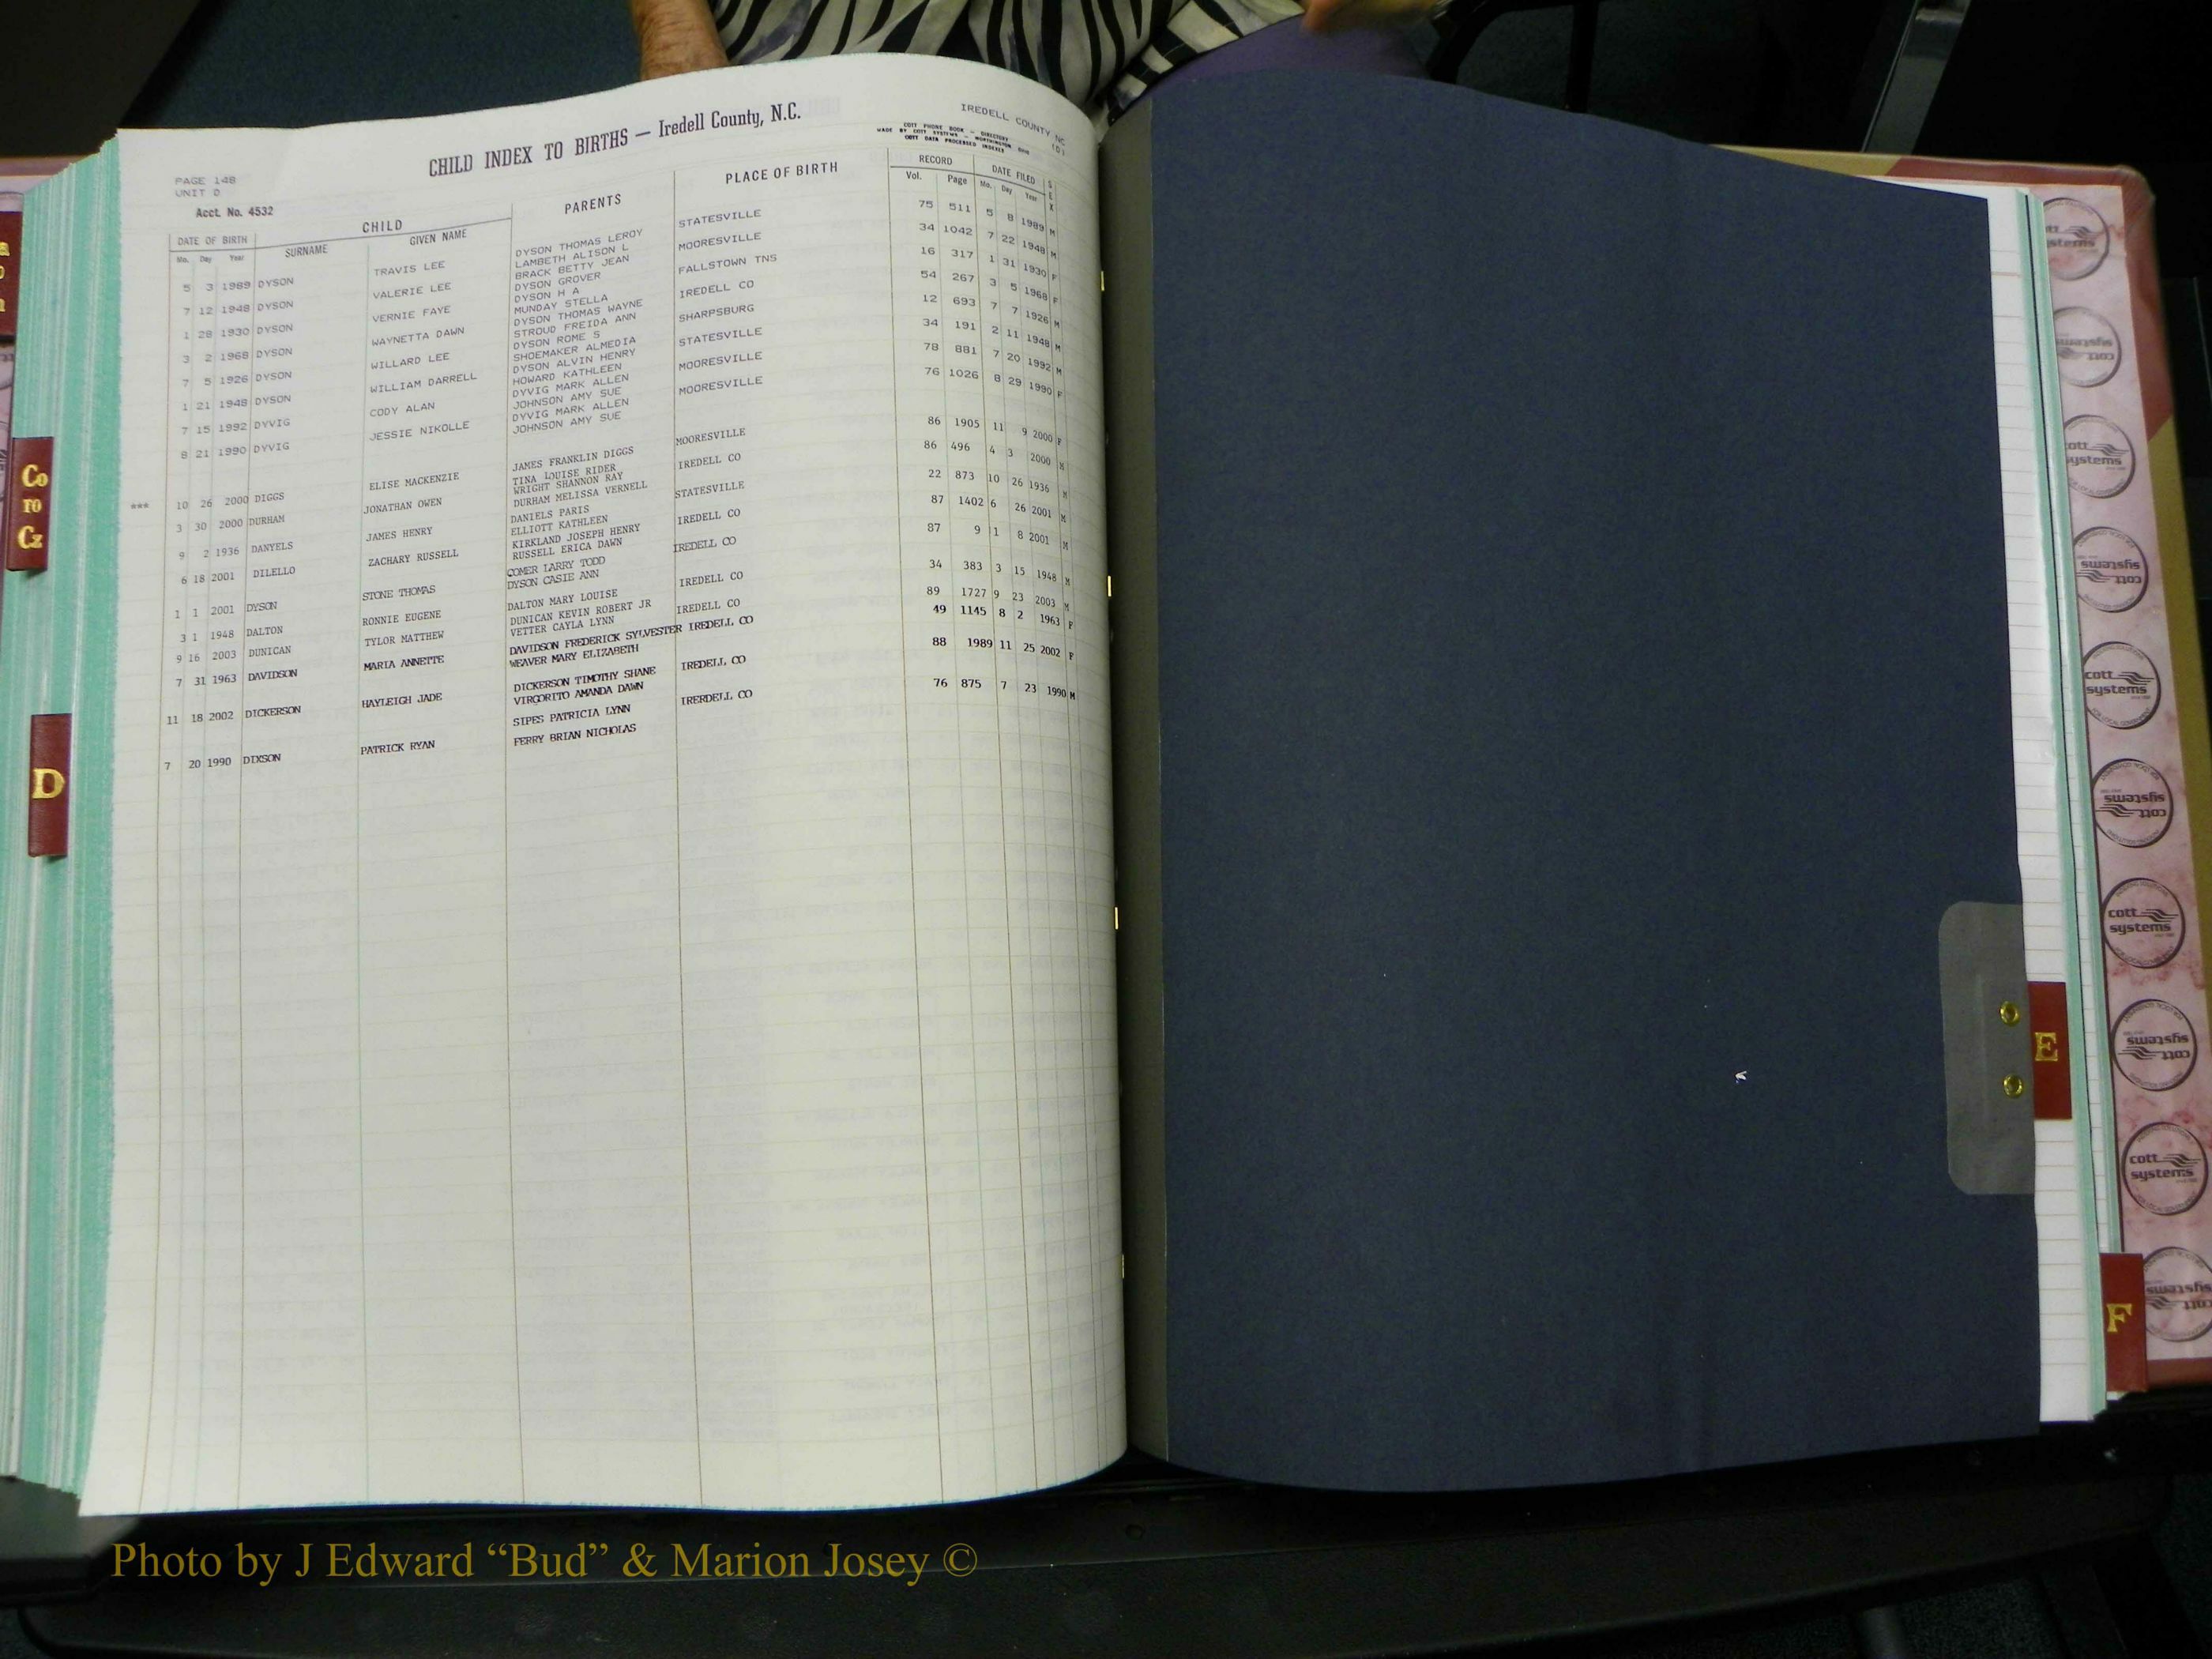 CHILD INDEX TO BIRTHS — Iredell County, N.C.
IREDELL COUNTY NC
(D)
COTT PHONE BOOK - DIRECTORY
MADE BY COTT SYSTEMS - WORTHINGTON Ohio
COTT DATA PROCESSED INDEXES
PAGE 148
UNIT D
Acct. No. 4532
DATE OF BIRTH CHILD PARENTS PLACE OF BIRTH RECORD DATE FILED SEX
Mo. Day Year SURNAME GIVEN NAME Vol. Page Mo. Day Year
5 3 1989 DYSON TRAVIS LEE DYSON THOMAS LEROY STATESVILLE 75 511 5 8 1989 M
LAMBETH ALISON L
7 12 1948 DYSON VALERIE LEE BRACK BETTY JEAN MOORESVILLE 34 1042 7 22 1948 M
DYSON GROVER
1 28 1930 DYSON VERNIE FAYE DYSON H A FALLSTOWN TNS 16 317 1 31 1930 F
MUNDAY STELLA
3 2 1968 DYSON WAYNETTA DAWN DYSON THOMAS WAYNE IREDELL CO 54 267 3 5 1968 F
STROUD FREIDA ANN
7 5 1926 DYSON WILLARD LEE DYSON ROME S SHARPSBURG 12 693 7 7 1926 M
SHOEMAKER ALMEDIA
1 21 1948 DYSON WILLIAM DARRELL DYSON ALVIN HENRY STATESVILLE 34 191 2 11 1948 M
HOWARD KATHLEEN
7 15 1992 DYVIG CODY ALAN DYVIG MARK ALLEN MOORESVILLE 78 881 7 20 1992 M
JOHNSON AMY SUE
8 21 1990 DYVIG JESSIE NIKOLLE DYVIG MARK ALLEN MOORESVILLE 76 1026 8 29 1990 F
JOHNSON AMY SUE
*** 10 26 2000 DIGGS ELISE MACKENZIE JAMES FRANKLIN DIGGS MOORESVILLE 86 1905 11 9 2000 F
TINA LOUISE RIDER
3 30 2000 DURHAM JONATHAN OWEN WRIGHT SHANNON RAY IREDELL CO 86 496 4 3 2000 M
DURHAM MELISSA VERNELL
9 2 1936 DANYELS JAMES HENRY DANIELS PARIS STATESVILLE 22 873 10 26 1936 M
ELLIOTT KATHLEEN
6 18 2001 DILELLO ZACHARY RUSSELL KIRKLAND JOSEPH HENRY IREDELL CO 87 1402 6 26 2001 M
RUSSELL ERICA DAWN
1 1 2001 DYSON STONE THOMAS COMER LARRY TODD IREDELL CO 87 9 1 8 2001 M
DYSON CASIE ANN
3 1 1948 DALTON RONNIE EUGENE DALTON MARY LOUISE IREDELL CO 34 383 3 15 1948 M
9 16 2003 DUNICAN TYLOR MATTHEW DUNICAN KEVIN ROBERT JR IREDELL CO 89 1727 9 23 2003 M
VETTER CAYLA LYNN
7 31 1963 DAVIDSON MARIA ANNETTE DAVIDSON FREDERICK SYLVESTER IREDELL CO 49 1145 8 2 1963 F
WEAVER MARY ELIZABETH
11 18 2002 DICKERSON HAYLEIGH JADE DICKERSON TIMOTHY SHANE IREDELL CO 88 1989 11 25 2002 F
VIRGORITO AMANDA DAWN
7 20 1990 DIXSON PATRICK RYAN SIPES PATRICIA LYNN IRERDELL CO 76 875 7 23 1990 M
FERRY BRIAN NICHOLAS
Co
TO
Cz
D
E
F
cott systems
Photo by J Edward “Bud” & Marion Josey ©